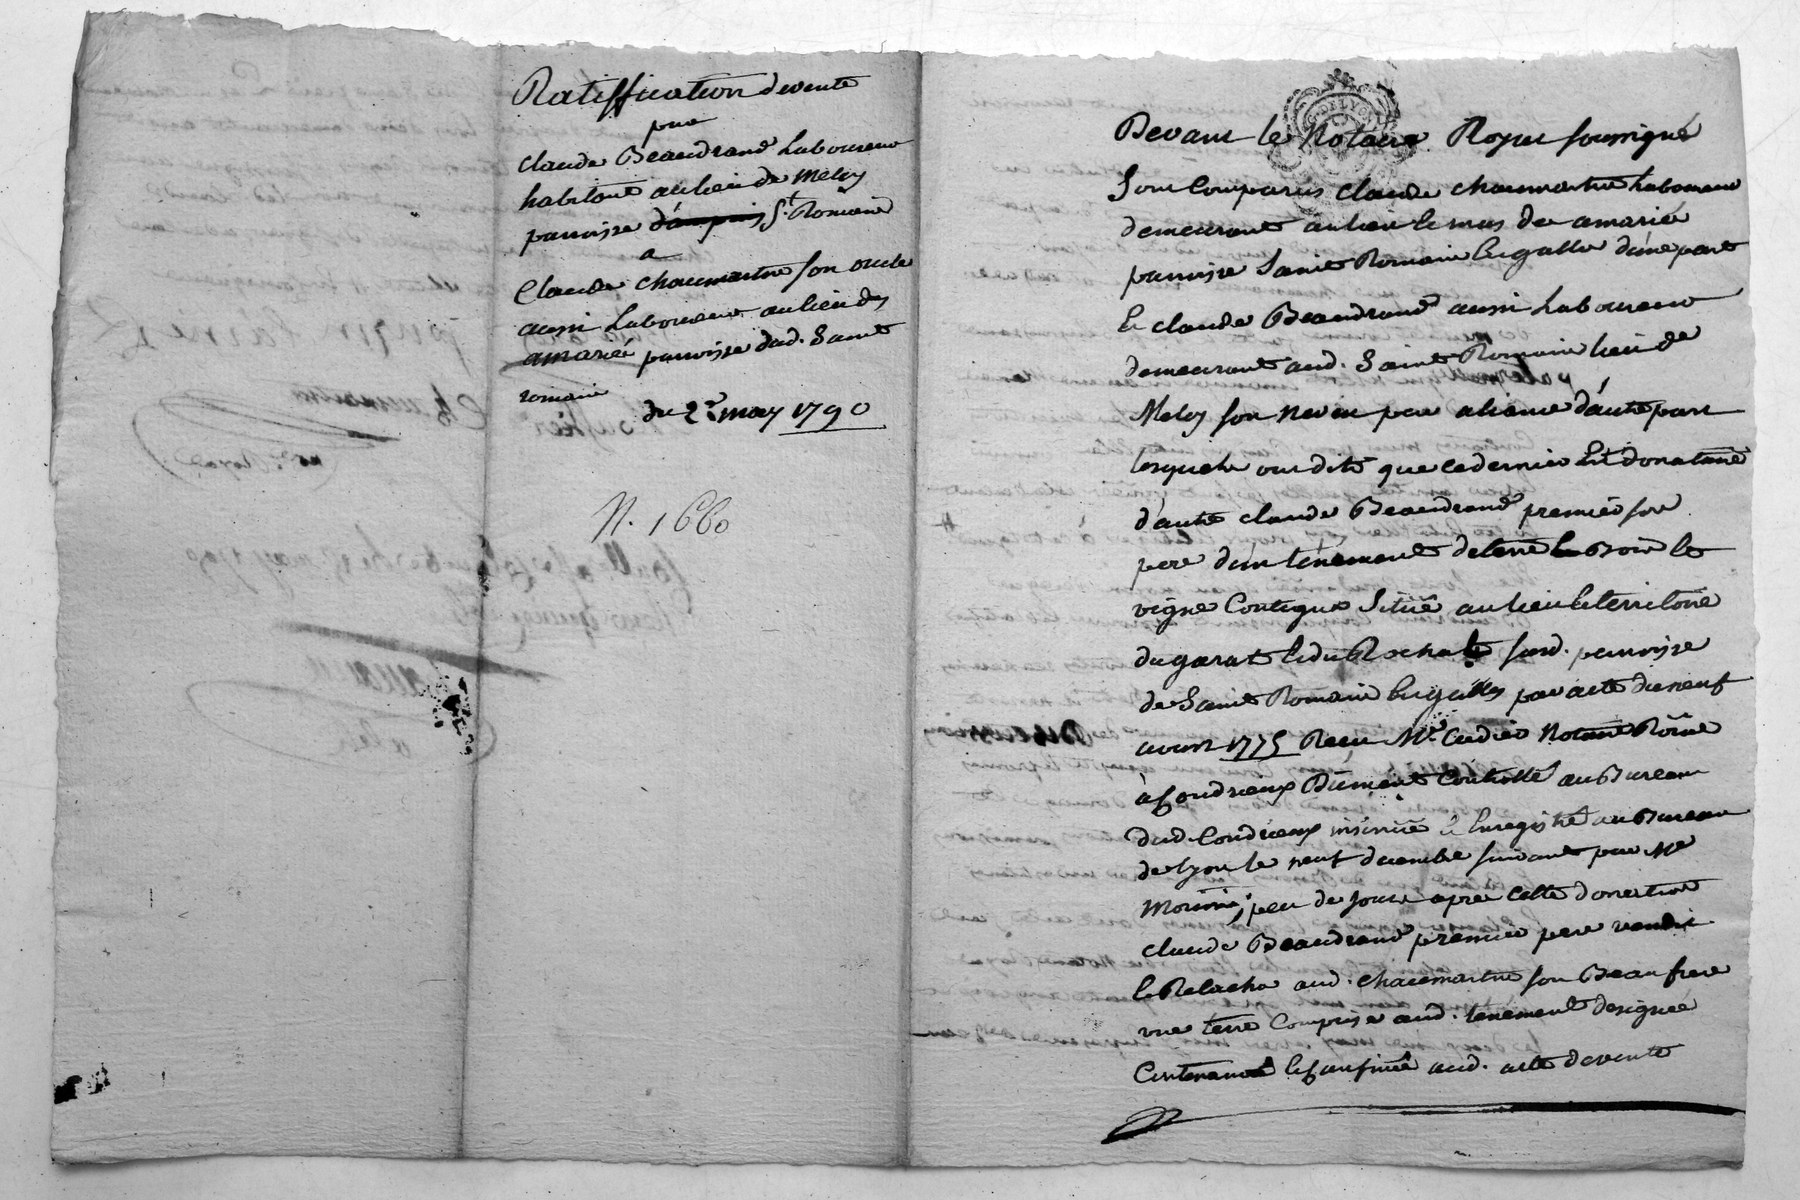 Ratiffication de vente
par
Claude Beaudrand Laboureur
habitant au lieu de Meloy
parroisse d'ampuis St Romain
a
Claude Chaumartin son oncle
aussi Laboureur au lieu des
amariée parroisse dud. Saint
romain
du 2e may 1790
N. 1660
DELYON
Devant le Notaire Royal soussigné
Sont Comparus Claude Chaumartin Laboureur
demeurant au lieu le mas de amarié
parroisse Saint Romain Engalle d'une part
Et Claude Beaudrand aussi Laboureur
demeurant aud. Saint Romain lieu de
Meloy son neveu par aliance d'autre part
lesquels ont dits que ce dernier Est donataire
d'autre Claude Beaudrand premier son
pere d'un tenement de terre Bois Et
vigne Contigux Situé au lieu Et territoire
du garat Et du Rochat sud. parroisse
de Saint Romain Engalles par acte du neuf
avant 1775 Recu Me Cudier Notaire
à Condrieux Dument Controllé au Bureau
dud. Condrieux insinué Et Enregistré au Bureau
de Lyon le neuf decembre suivant par Me
peu de jours apres cette donnation
Claude Beaudrand premier pere vendit
Et Relacha aud. Chaumartin son Beaufrere
une terre Comprise aud. tenement designée
Contenance Et Confinée aud. acte de vente